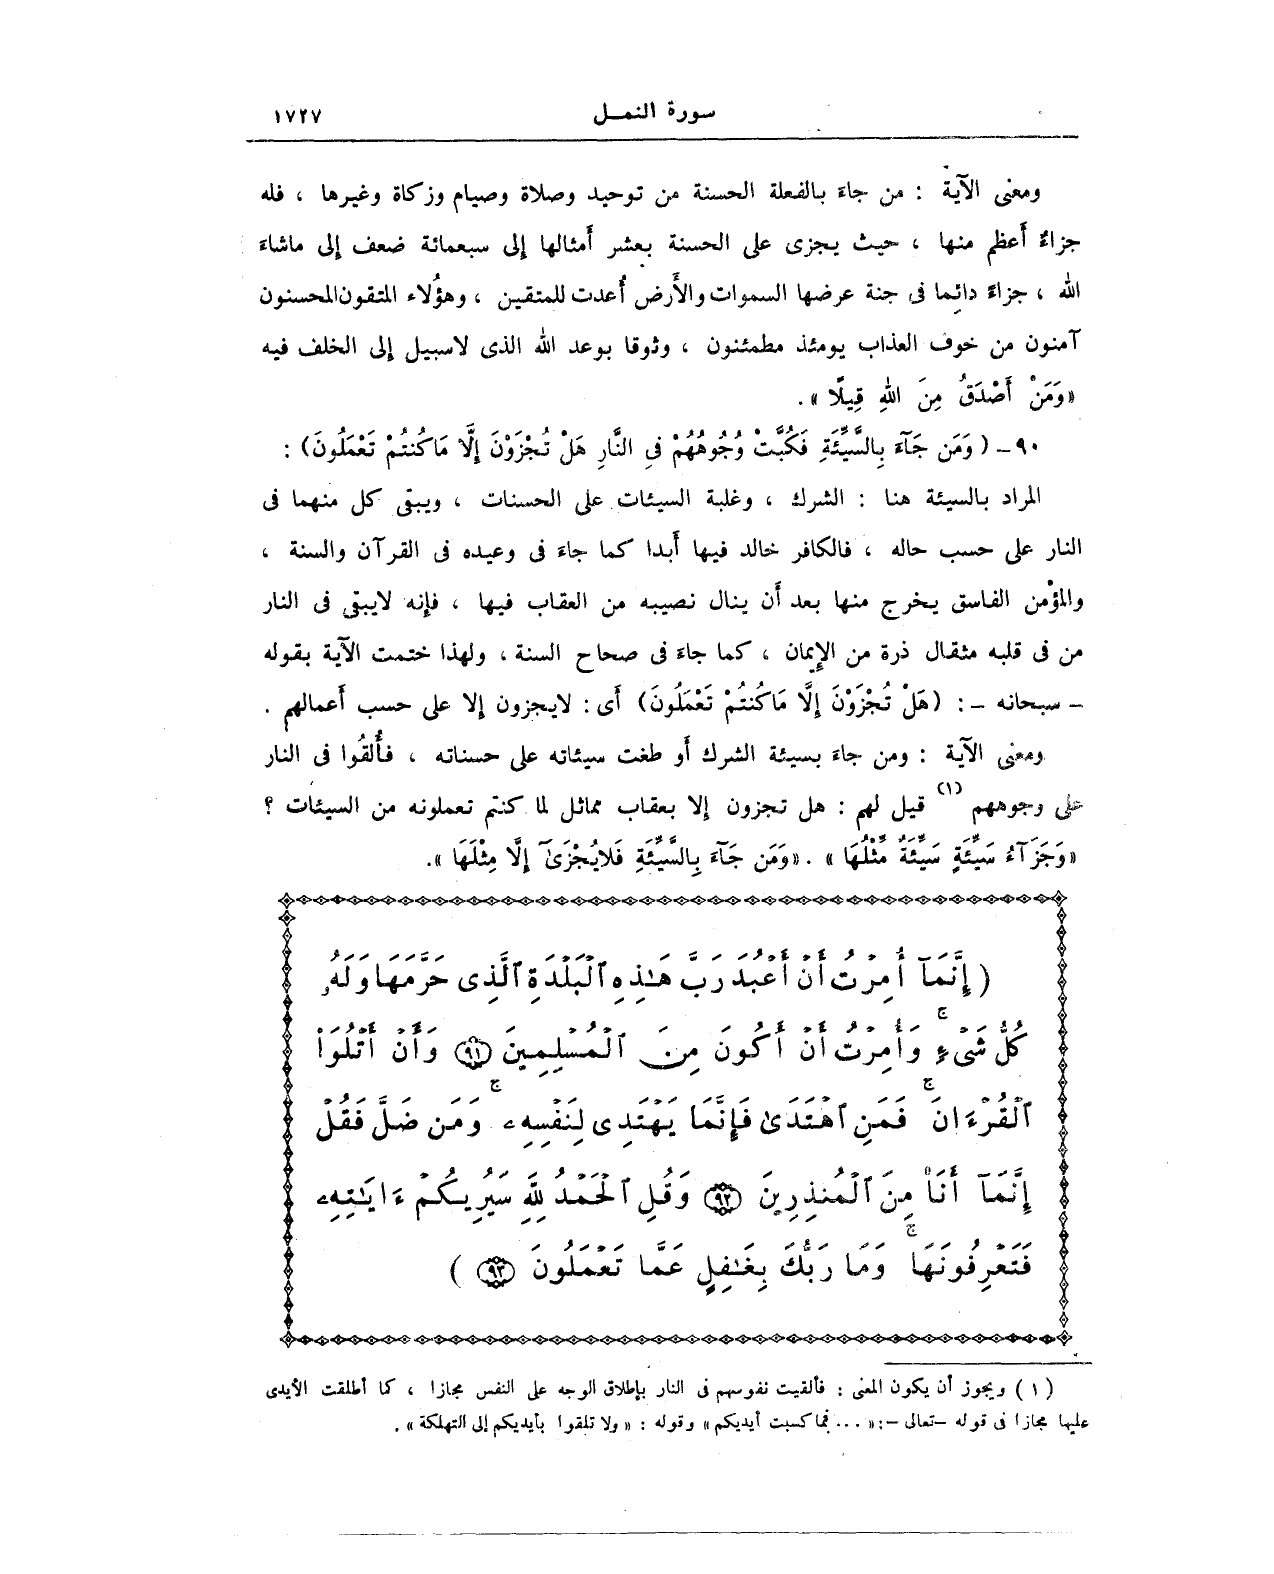 سورة النمل ١٧٢٧
ومعنى الآية : من جاءَ بالفعلة الحسنة من توحيد وصلاة وصيام وزكاة وغيرها ، فله
جزاءٌ أَعظم منها ، حيث يجزى على الحسنة بعشر أَمثالها إلى سبعمائة ضعف إلى ماشاءَ
الله ، جزاءً دائِما فى جنة عرضها السموات والأَرض أُعدت للمتقين ، وهؤُلاء المتقون المحسنون
آمنون من خوف العذاب يومئذ مطمئنون ، وثوقا بوعد الله الذى لاسبيل إلى الخلف فيه
«وَمَنْ أَصْدَقُ مِنَ اللهِ قِيلًا» .
٩٠ـ (وَمَن جَآءَ بِالسَّيِّئَةِ فَكُبَّتْ وُجُوهُهُمْ فِى النَّارِ هَلْ تُجْزَوْنَ إِلَّا مَا كُنتُمْ تَعْمَلُونَ) :
المراد بالسيئة هنا : الشرك ، وغلبة السيئات على الحسنات ، ويبقى كل منهما فى
النار على حسب حاله ، فالكافر خالد فيها أَبدا كما جاءَ فى وعيده فى القرآن والسنة ،
والمؤْمن الفاسق يخرج منها بعد أَن ينال نصيبه من العقاب فيها ، فإنه لايبقى فى النار
من فى قلبه مثقال ذرة من الإِيمان ، كما جاءَ فى صحاح السنة ، ولهذا ختمت الآية بقوله
ـ سبحانه ـ : (هَلْ تُجْزَوْنَ إِلَّا مَا كُنتُمْ تَعْمَلُونَ) أَى : لايجزون إلا على حسب أَعمالهم .
ومعنى الآية : ومن جاءَ بسيئة الشرك أَو طغت سيئاته على حسناته ، فأُلقُوا فى النار
على وجوههم (١) قيل لهم : هل تجزون إلا بعقاب مماثل لما كنتم تعملونه من السيئات ؟
«وَجَزَآءُ سَيِّئَةٍ سَيِّئَةٌ مِّثْلُهَا» . «وَمَن جَآءَ بِالسَّيِّئَةِ فَلَا يُجْزَىٰٓ إِلَّا مِثْلَهَا» .
(إِنَّمَآ أُمِرْتُ أَنْ أَعْبُدَ رَبَّ هَٰذِهِ ٱلْبَلْدَةِ ٱلَّذِى حَرَّمَهَا وَلَهُۥ
كُلُّ شَىْءٍۚ وَأُمِرْتُ أَنْ أَكُونَ مِنَ ٱلْمُسْلِمِينَ ٩١ وَأَنْ أَتْلُوَا۟
ٱلْقُرْءَانَۚ فَمَنِ ٱهْتَدَىٰ فَإِنَّمَا يَهْتَدِى لِنَفْسِهِۦۚ وَمَن ضَلَّ فَقُلْ
إِنَّمَآ أَنَا۠ مِنَ ٱلْمُنذِرِينَ ٩٢ وَقُلِ ٱلْحَمْدُ لِلَّهِ سَيُرِيكُمْ ءَايَٰتِهِۦ
فَتَعْرِفُونَهَاۚ وَمَا رَبُّكَ بِغَٰفِلٍ عَمَّا تَعْمَلُونَ ٩٣ )
(١) ويجوز أن يكون المعنى : فألقيت نفوسهم فى النار بإطلاق الوجه على النفس مجازا ، كما أطلقت الأيدى
عليها مجازا فى قوله ـ تعالى ـ : «... فبما كسبت أيديكم» وقوله : «ولا تلقوا بأيديكم إلى التهلكة» .